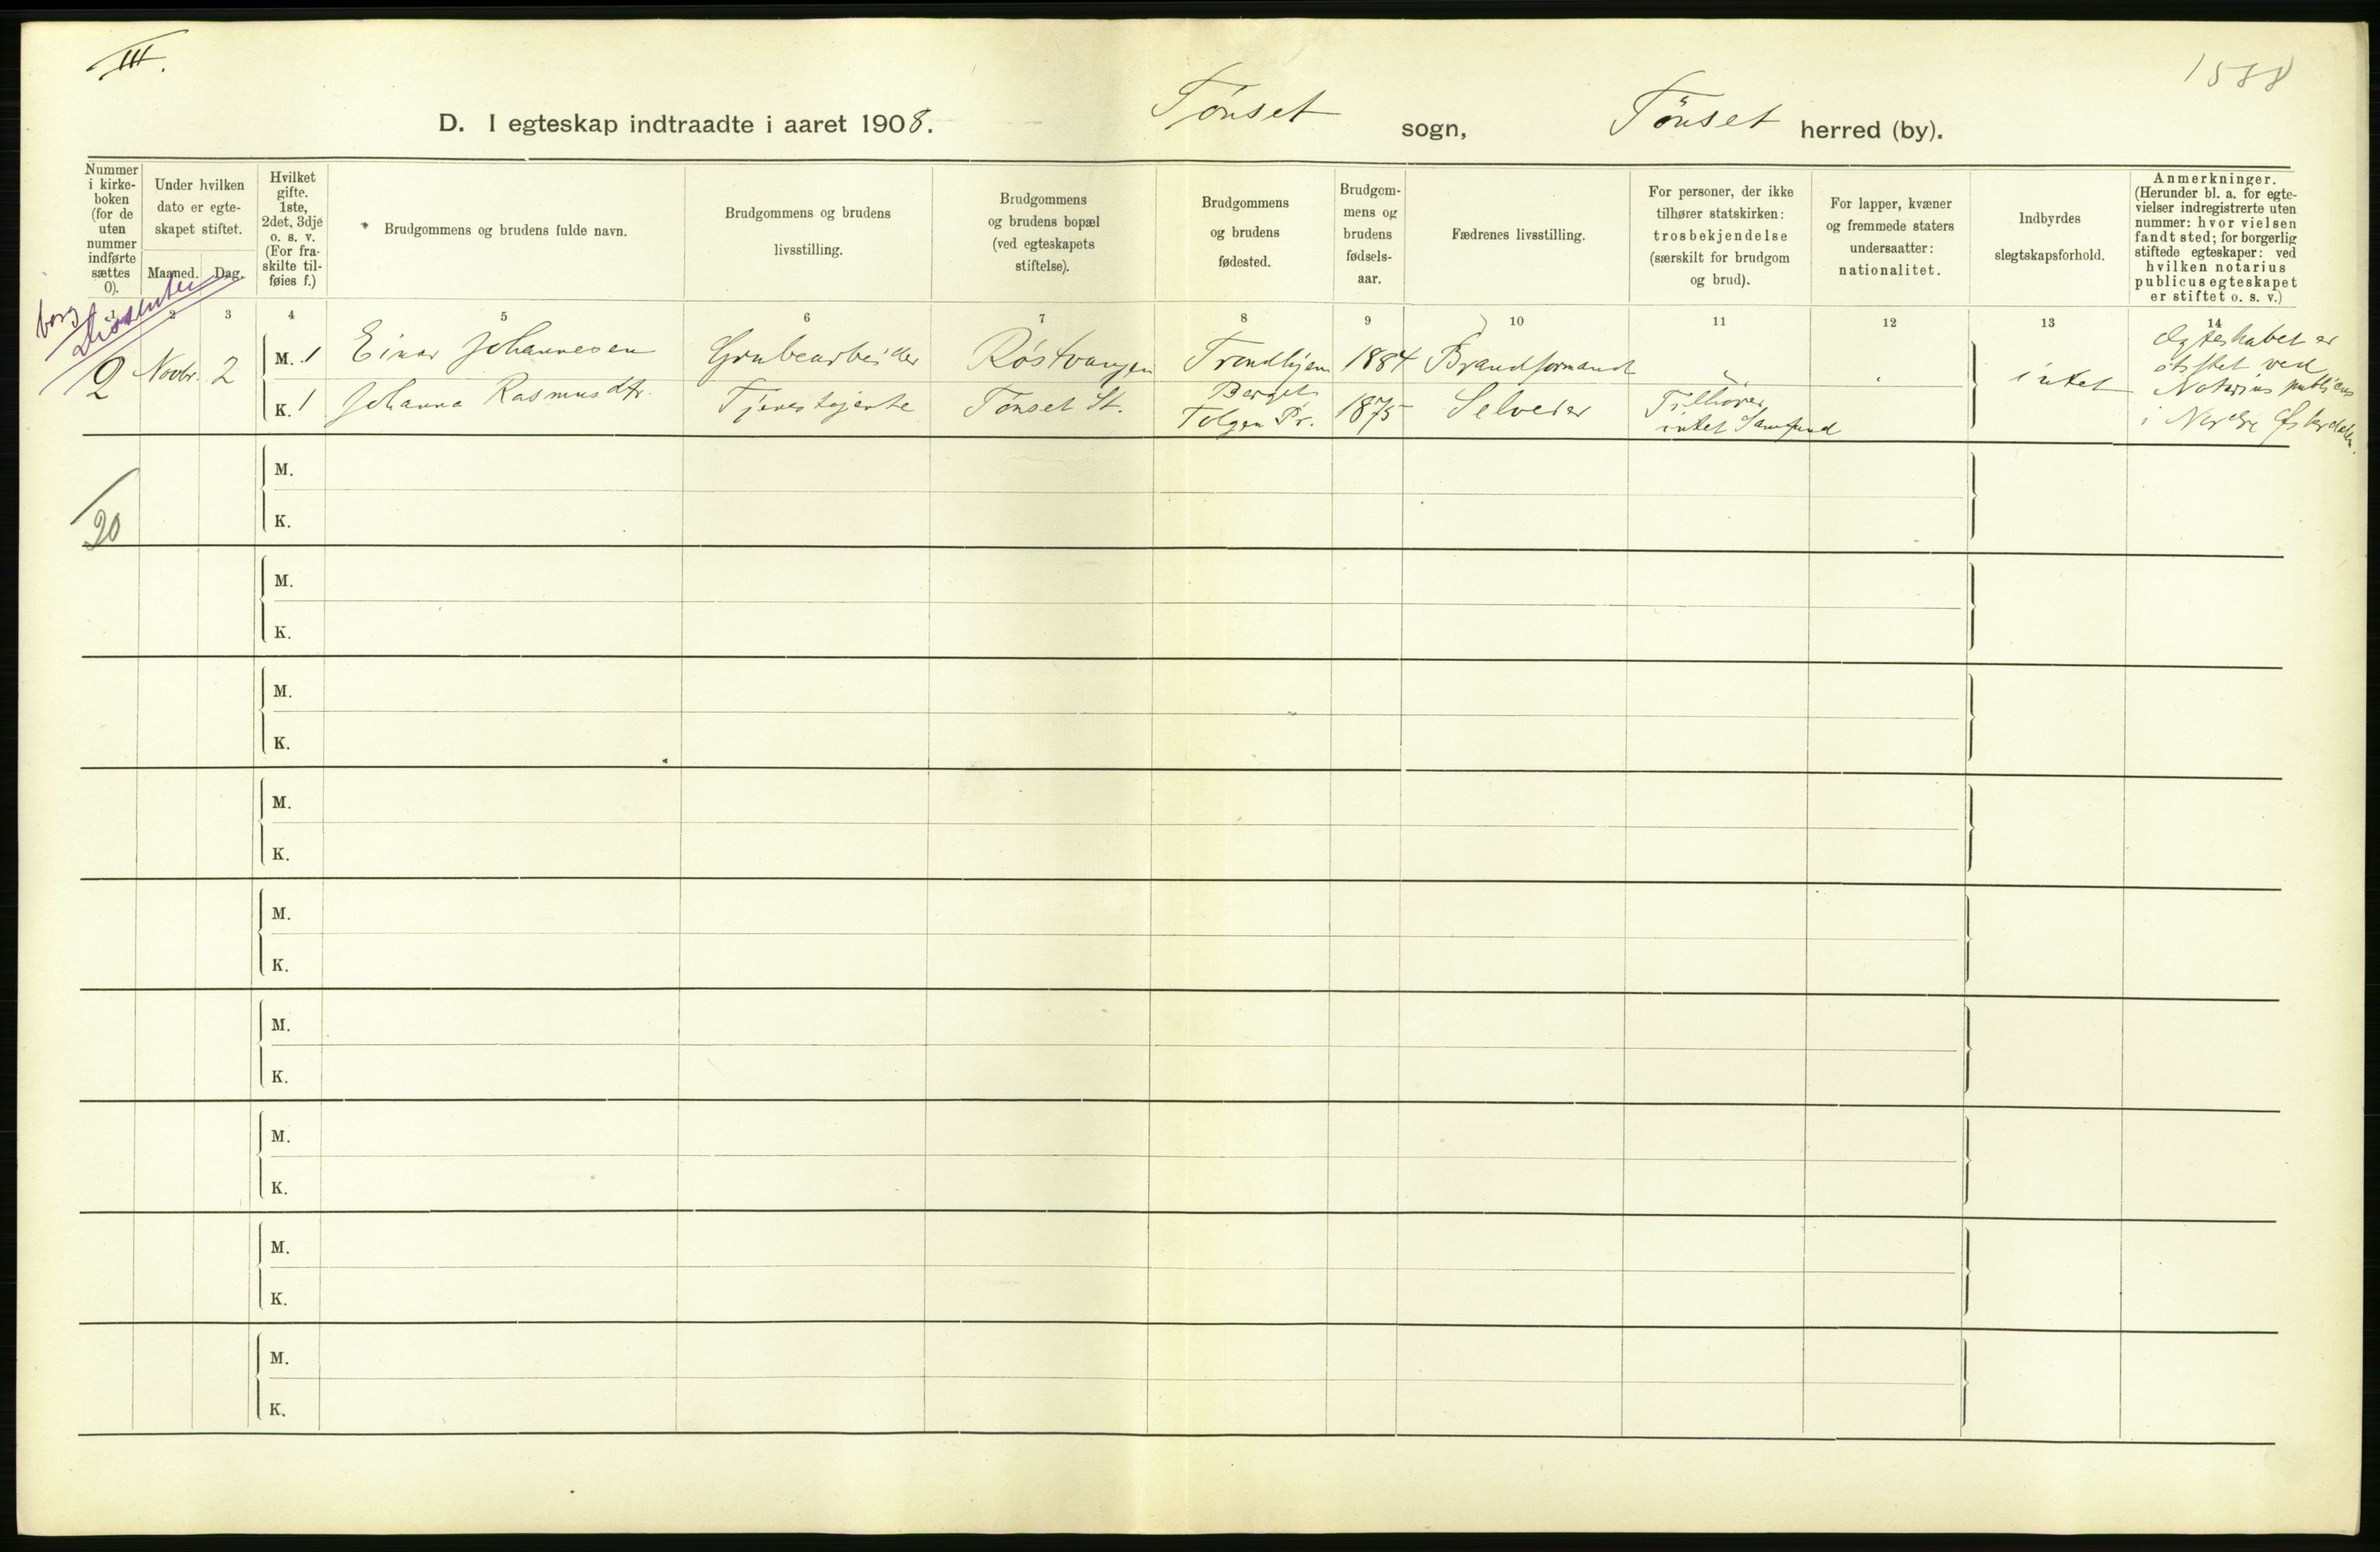 III.
1588
D. I egteskap indtraadte i aaret 1908. Tønset sogn, Tønset herred (by).
Nummer i kirke-boken (for de uten nummer indførte sættes 0).
Under hvilken dato er egte-skapet stiftet.
Maaned. Dag.
Hvilket gifte. 1ste, 2det, 3dje o. s. v. (For fra-skilte til-føies f.)
Brudgommens og brudens fulde navn.
Brudgommens og brudens livsstilling.
Brudgommens og brudens bopæl (ved egteskapets stiftelse).
Brudgommens og brudens fødested.
Brudgom-mens og brudens fødsels-aar.
Fædrenes livsstilling.
For personer, der ikke tilhører statskirken: trosbekjendelse (særskilt for brudgom og brud).
For lapper, kvæner og fremmede staters undersaatter: nationalitet.
Indbyrdes slegtskapsforhold.
Anmerkninger. (Herunder bl. a. for egte-vielser indregistrerte uten nummer: hvor vielsen fandt sted; for borgerlig stiftede egteskaper: ved hvilken notarius publicus egteskapet er stiftet o. s. v.)
1 2 3 4 5 6 7 8 9 10 11 12 13 14
borg
Dissenter
2 Novbr. 2
M. 1 Einar Johannesen Grubearbeider Røstvangen Trondhjem 1884 Brandformand
K. 1 Johanna Rasmusdtr. Tjenestejente Tønset St. Berget Tolgen Pr. 1875 Selveier Tilhører intet Samfund
intet
Ægteskabet er
stiftet ved
Notarius publicus
i Nordre Østerdalen.
M.
K.
20
M.
K.
M.
K.
M.
K.
M.
K.
M.
K.
M.
K.
M.
K.
M.
K.